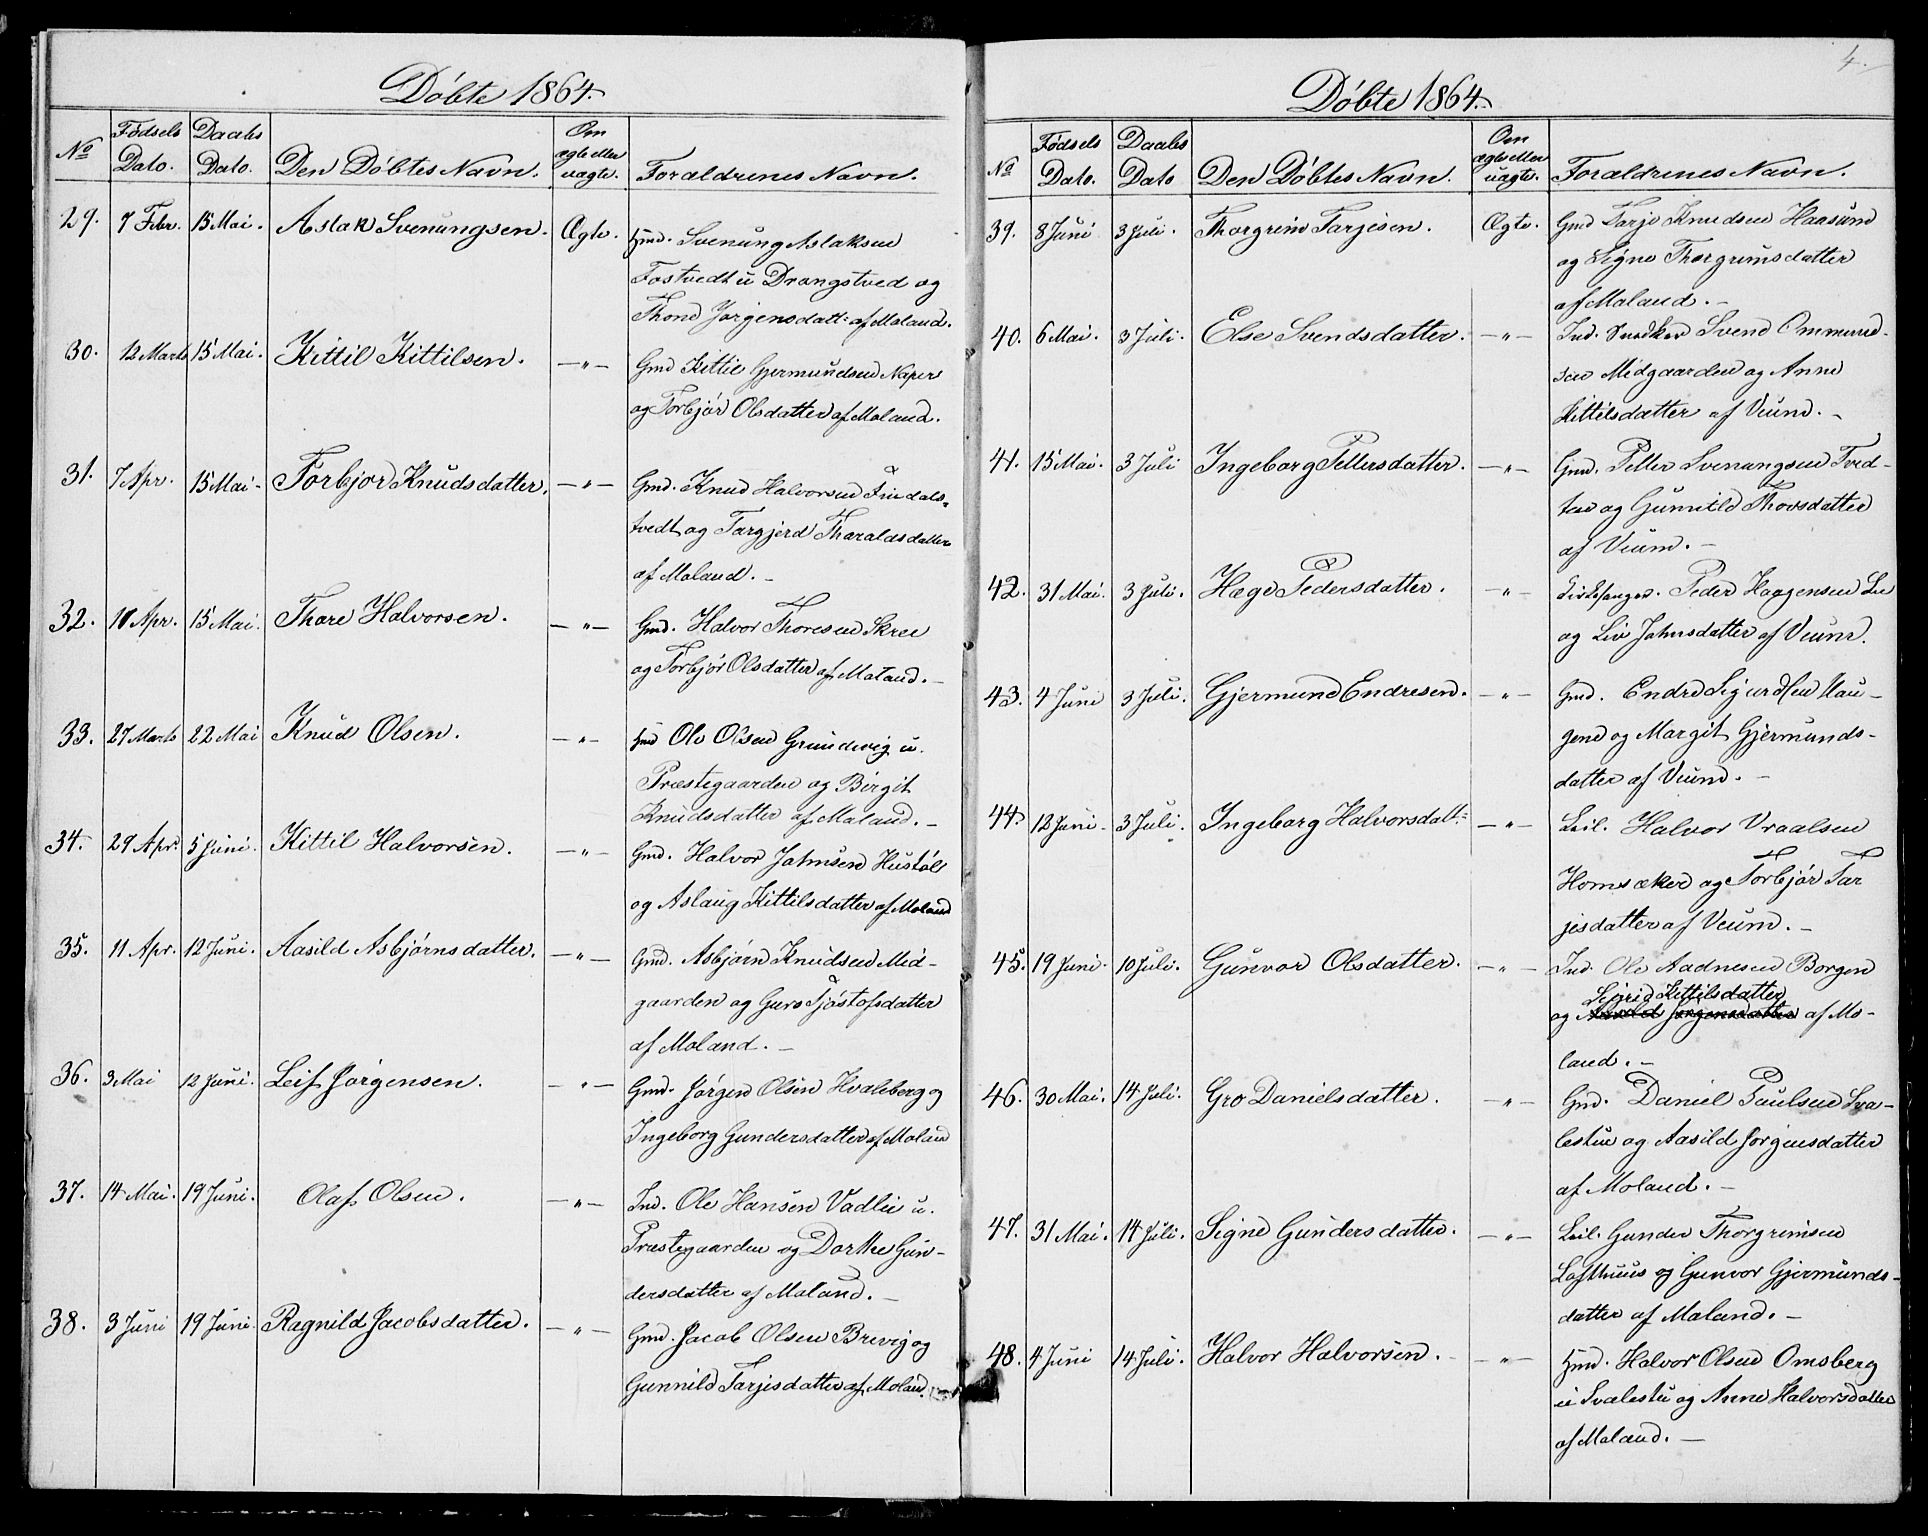 Döbte 1864.
No
Födsels Dato.
Daabs Dato.
Den Döbtes Navn.
Om ægte eller uægte.
Foraldrenes Navn.
29. 7 Febr. 15 Mai. Aslak Svenungsen. Ægte. Hmd. Svenung Aslaksen
Fostvedt u Drangstved og
Thone Jørgensdatt: af Moland.
30. 12 Marts 15 Mai. Kittil Kittilsen. —"— Gmd Kittil Gjermundsen Naper
og Torbjör Olsdatter af Moland.
31. 7 Apr. 15 Mai - Torbjor Knudsdatter. —"— Gmd. Knud Halvorsen Findals-
tvedt og Targjerd Tharaldsdatter
af Moland. -
32. 10 Apr. 15 Mai. Thore Halvorsen. —"— Gmd. Halvor Thoresen Skree
og Torbjör Olsdatter af Moland. -
33. 27 Marts 22 Mai Knud Olsen. —"— Hmd Ole Olsen Grundevig u.
Præstegaarden og Birgit
Knudsdatter af Moland. -
34. 29 Apr. 5 Juni. Kittil Halvorsen. —"— Gmd. Halvor Jahnsen Hustöl
og Aslaug Kittilsdatter af Moland
35. 11 Apr. 12 Juni. Aasild Asbjørnsdatter. —"— Gmd. Asbjørn Knudsen Mid-
gaarden og Guro Tjöstofsdatter
af Moland. -
36. 3 Mai 12 Juni. Leif Jørgensen. —"— Gmd. Jørgen Olsen Hvaleberg og
Ingeborg Gundersdatter af Moland
37. 14 Mai. 19 Juni. Olaf Olsen. —"— Ind. Ole Hansen Vadlie u.
Præstegaarden og Dorthe Gun-
dersdatter af Moland. -
38. 3 Juni 19 Juni. Ragnild Jacobsdatter. —"— Gmd. Jacob Olsen Brevig og
Gunnild Tarjesdatter af Moland.
4.
Döbte 1864.
No
Fødsels Dato.
Daabs Dato
Den Døbtes Navn.
Om ægte eller uægte.
Foraldrenes Navn.
39. 8 Juni 3 Juli. Thorgrim Tarjesen. Ægte. Gmd Tarje Knudsen Haasund
og Signe Thorgrimsdatter
af Moland. -
40. 6 Mai. 3 Juli. Else Svendsdatter. —"— Ind. Snedker Svend Ommund-
sen Midgaarden og Anne
Kittilsdatter af Veum. -
41. 15 Mai. 3 Juli Ingeborg Pettersdatter. —"— Gmd. Petter Svenungsen Tved-
ten og Gunnild Thovsdatter
af Veum. -
42. 31 Mai. 3 Juli. Hæge Pedersdatter. —"— Kirkesanger. Peder Haagensen Lie
og Liv Jahnsdatter af Veum.
43. 4 Juni 3 Juli. Gjermund Endresen. —"— Gmd. Endre Sigurdsen Hau-
gene og Margit Gjermunds-
datter af Veum. -
44. 12 Juni. 3 Juli. Ingeborg Halvorsdatt: —"— Leil. Halvor Vraalsen
Homsæker og Torbjör Tar
jesdatter af Veum. -
45. 19 Juni. 10 Juli. Gunvor Olsdatter. —"— Ind. Ole Aadnesen Borgen
Sigrid Kittilsdatter
og Aasild Jørgensdatter af Mo-
land. -
46. 30 Mai. 14 Juli. Gro Danielsdatter. —"— Gmd. Daniel Paulsen Sva-
lestue og Aasild Jørgensdatter
af Moland. -
47. 31 Mai. 14 Juli. Signe Gundersdatter. —"— Leil. Gunder Thorgrimsen
Lofthuus og Gunvor Gjermunds-
datter af Moland. -
48. 4 Juni 14 Juli. Halvor Halvorsen. —"— Hmd. Halvor Olsen Omsberg
u Svalestu og Anne Halvorsdatter
af Moland. -